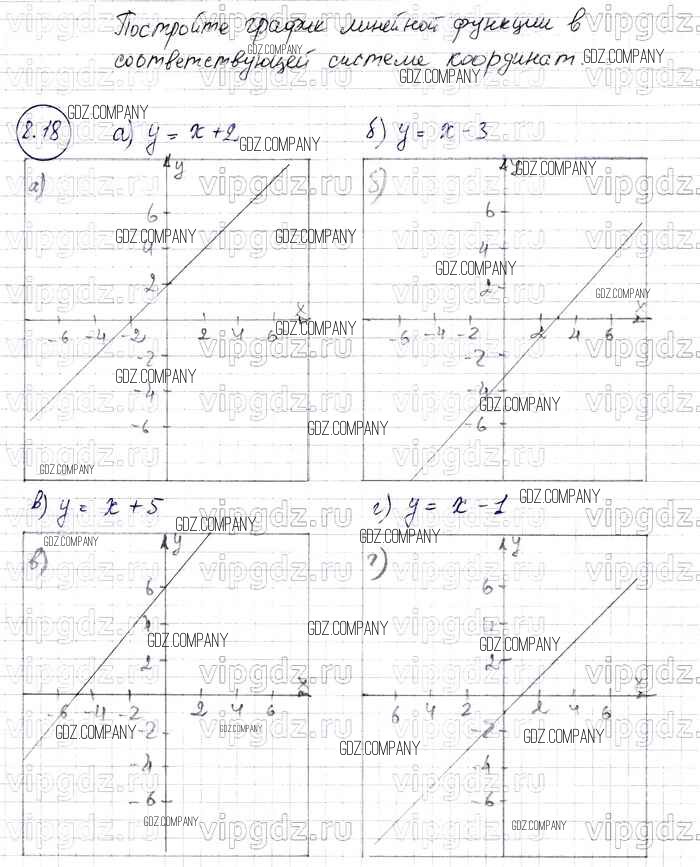 Постройте график линейной функции в
соответствующей системе координат.
8.18 а) y = x + 2 б) y = x - 3
а) y б) y
6 6
4 4
2 2
x x
-6 -4 -2 2 4 6 -6 -4 -2 2 4 6
-2 -2
-4 -4
-6 -6
в) y = x + 5 г) y = x - 1
в) y г) y
6 6
4 4
2 2
x x
-6 -4 -2 2 4 6 6 4 2 2 4 6
-2 -2
-4 -4
-6 -6
GDZ.COMPANY
vipgdz.ru